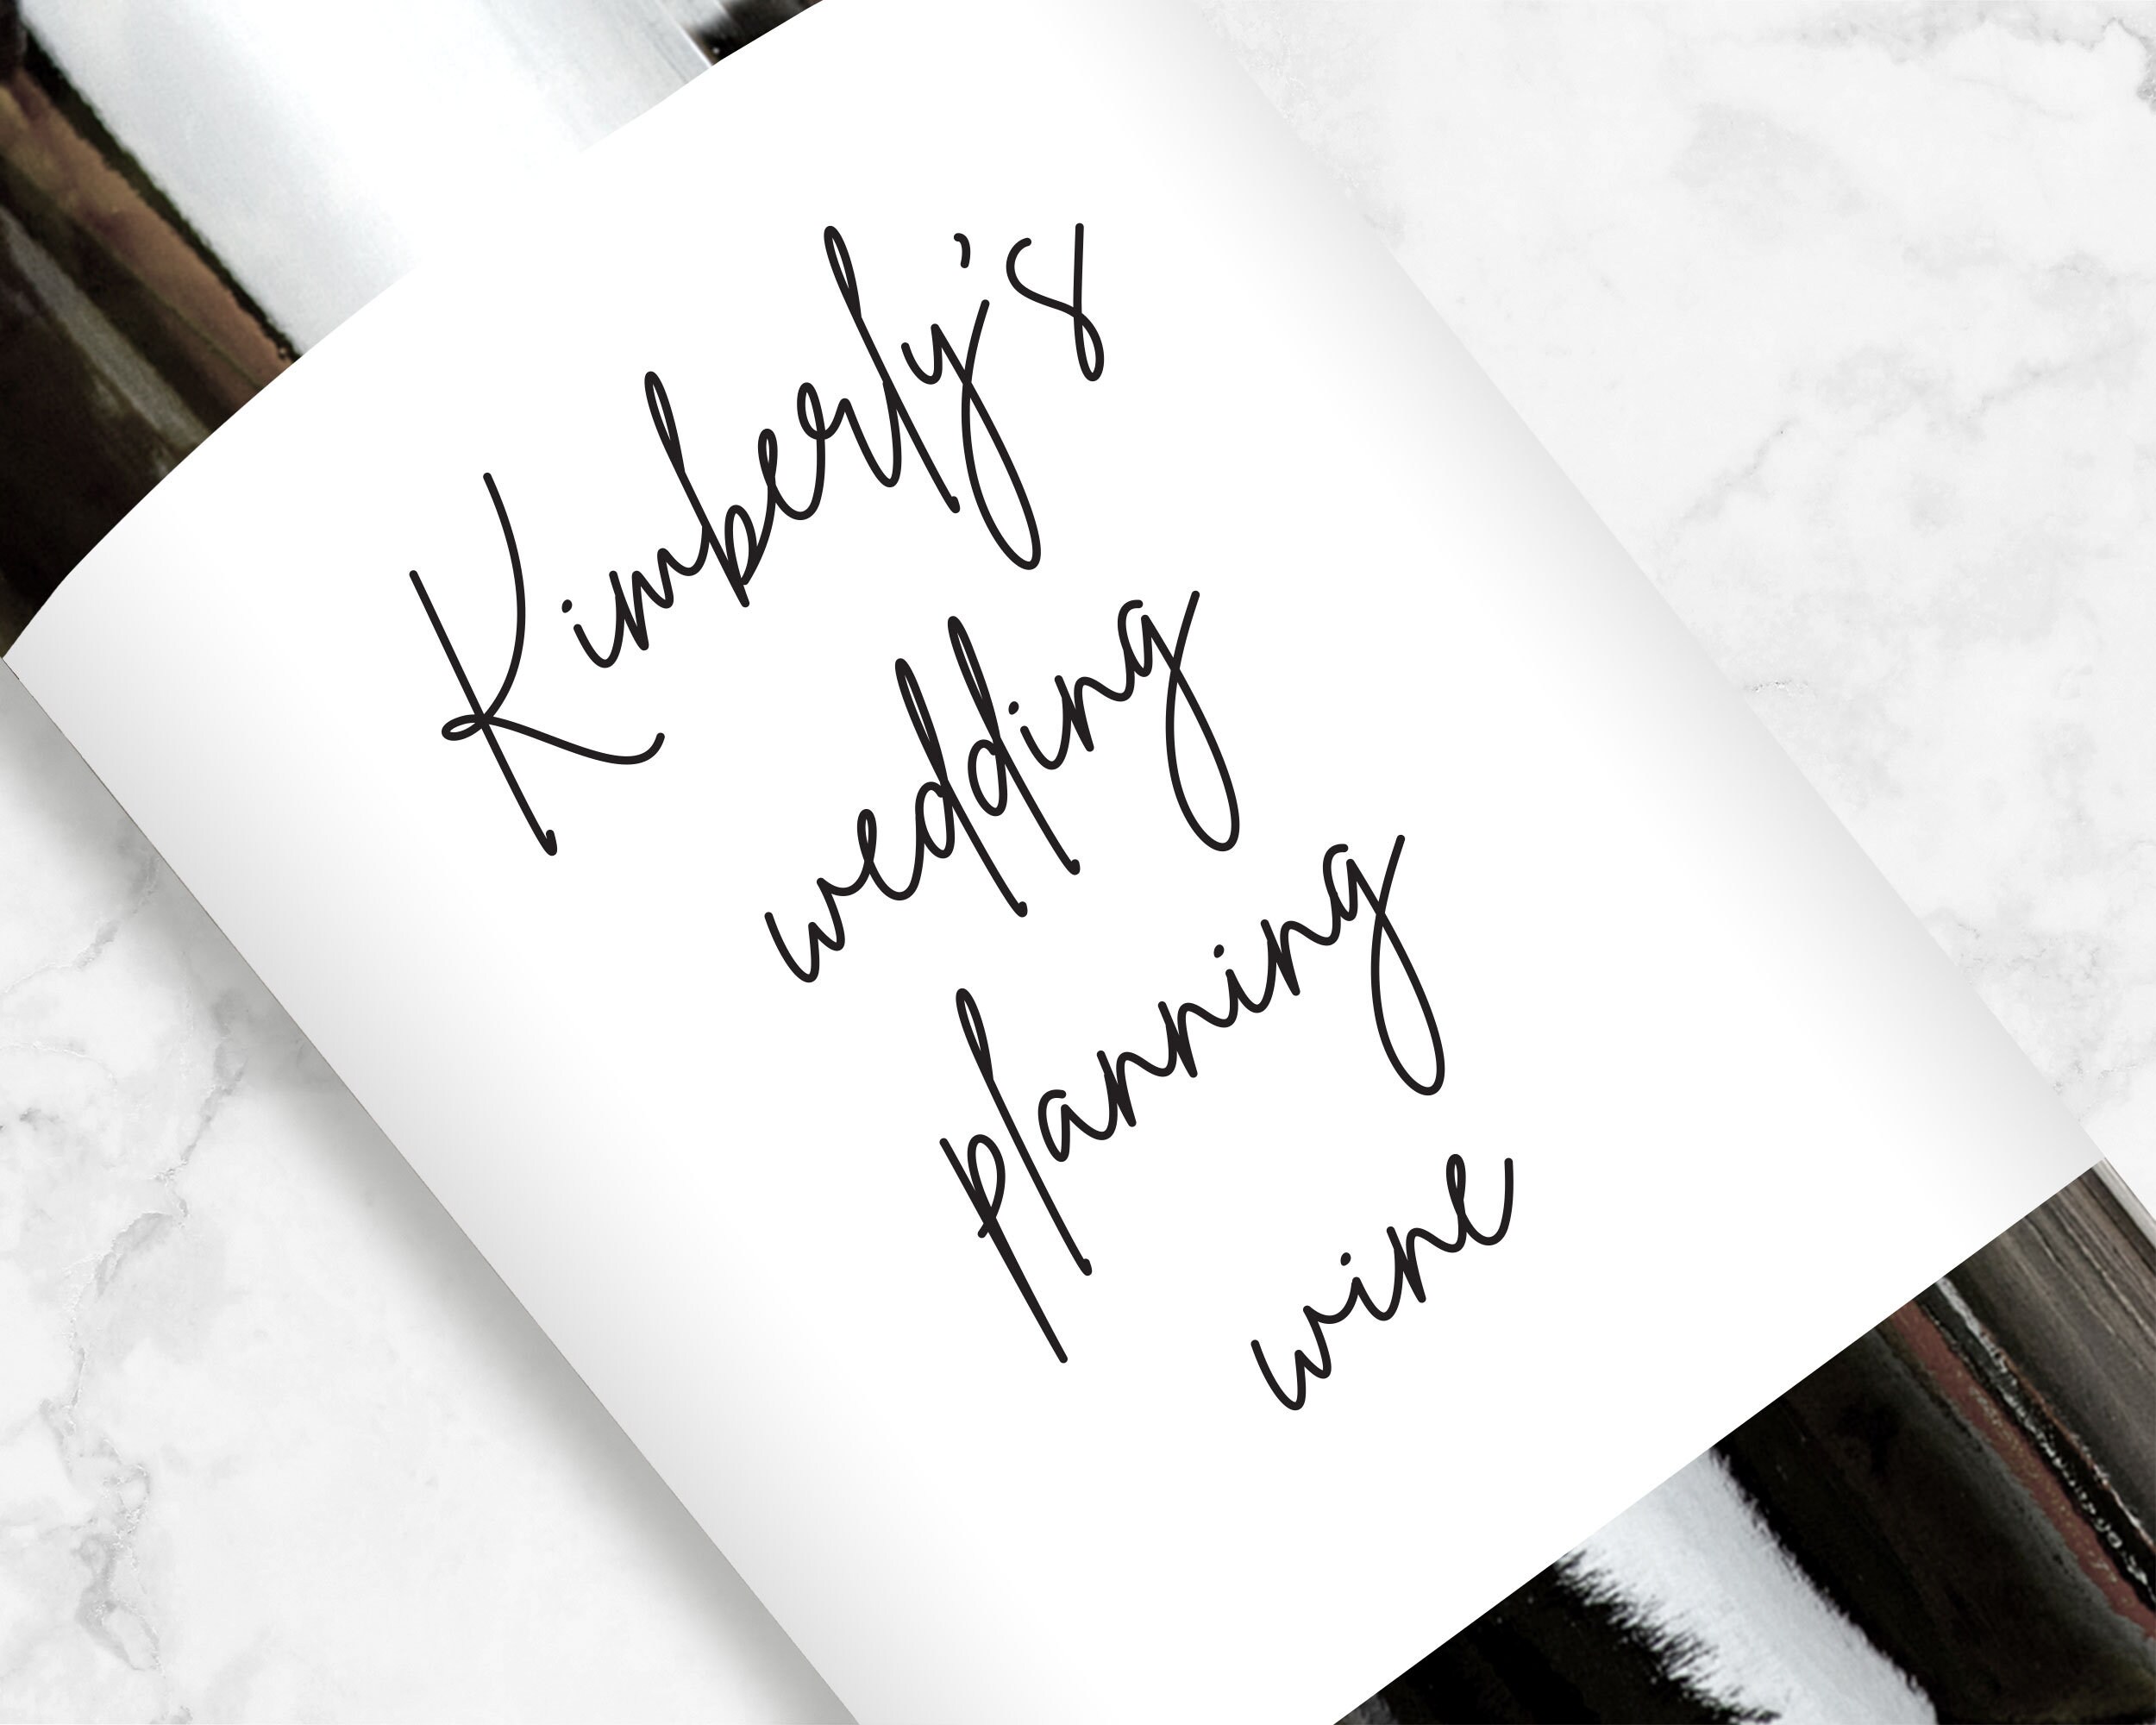 Kimberly's
wedding
planning
wine